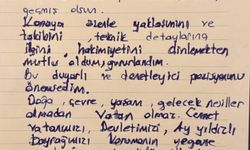 geçmiş olsun.
Konuya özenle yaklaşımını ve
takibini, teknik detaylarına
ilgini, hakimiyetini dinlemekten
mutlu oldum, gururlandım.
Bu duyarlı ve denetleyici pozisyonunu
önemsedim.
Doğa, çevre, yaşam, gelecek nesiller
olmadan Vatan olmaz. Cennet
vatanımızı, Devletimizi, Ay yıldızlı
Bayrağımızı Korumanın yegane